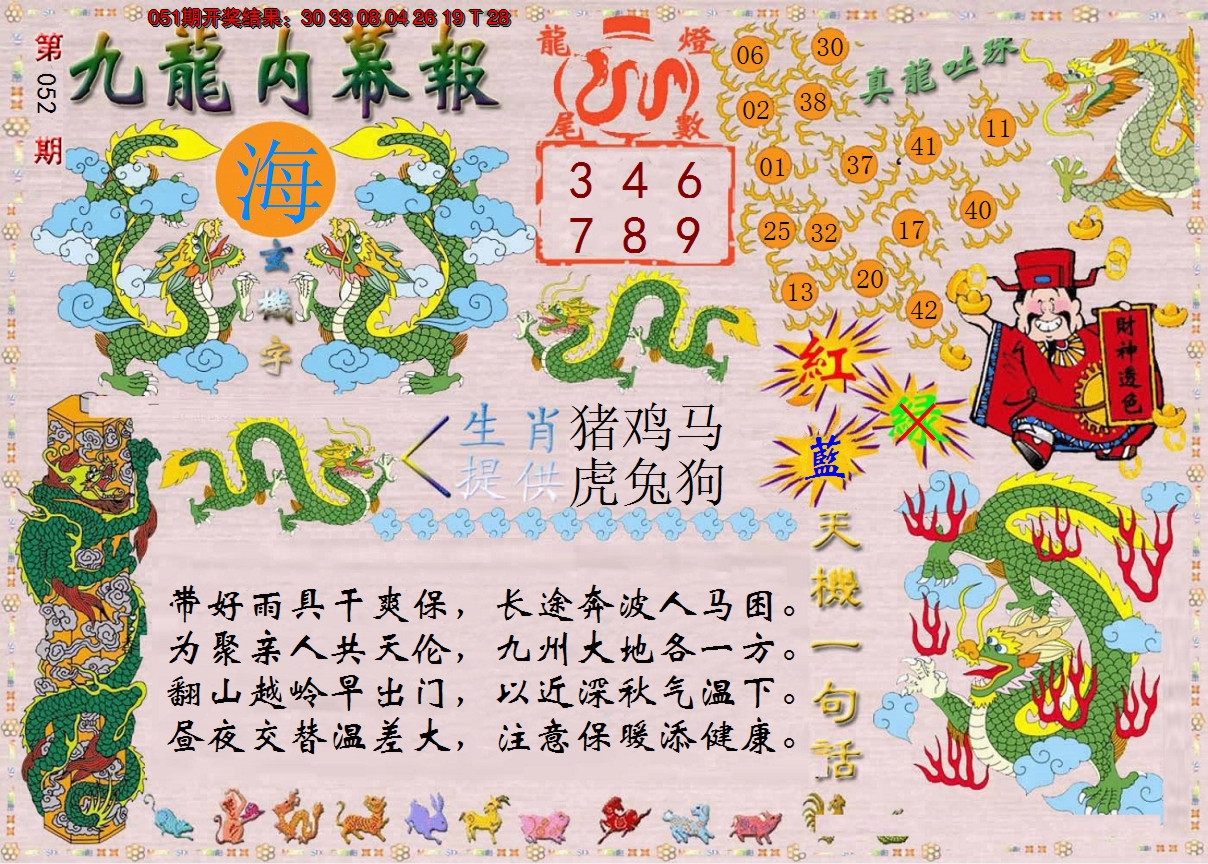 051期开奖结果：30 33 08.04 26 19 T 28
第052期
九龍内幕報
海
玄機字
龍燈
尾數
3 4 6
7 8 9
真龍吐珠
06 30
02 38
41 11
01 37
40
25 32 17
13 20
42
紅
绿
藍
財神透色
生肖 猪鸡马
提供 虎兔狗
天機一句話
带好雨具干爽保，长途奔波人马困。
为聚亲人共天伦，九州大地各一方。
翻山越岭早出门，以近深秋气温下。
昼夜交替温差大，注意保暖添健康。